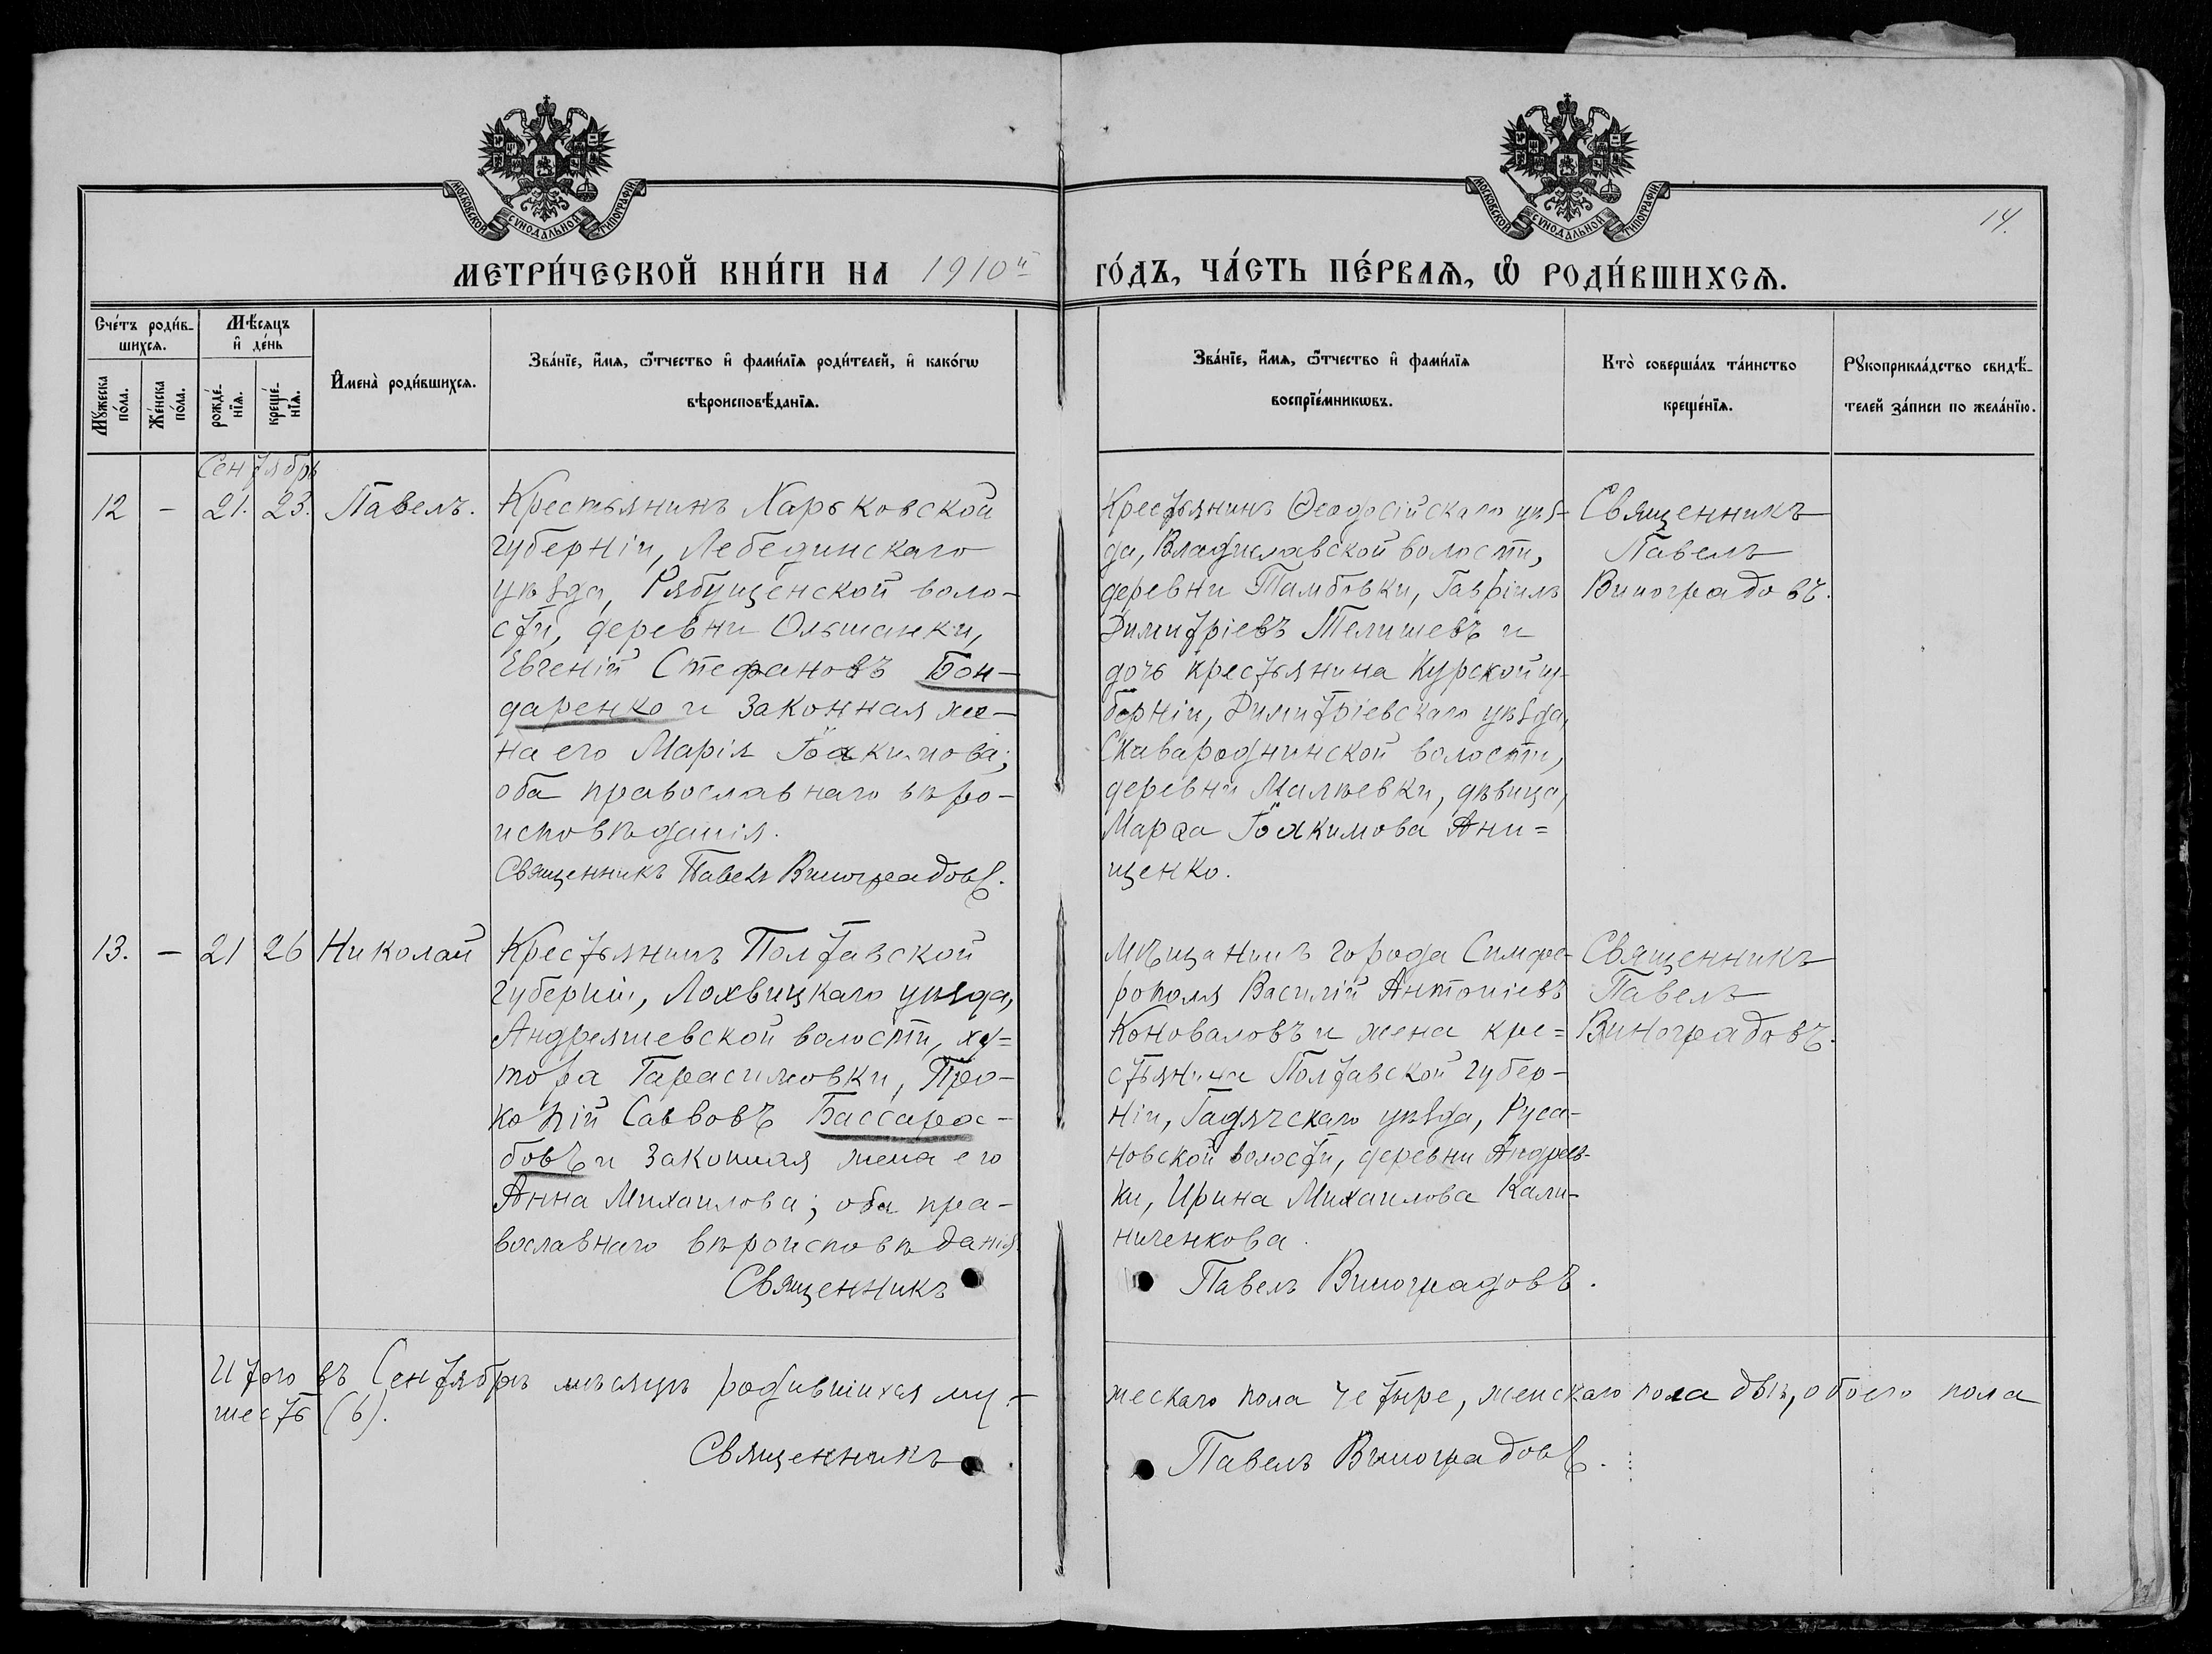 МОСКОВСКОЙ СѴНОДАЛЬНОЙ ТИПОГРАФІИ
МОСКОВСКОЙ СѴНОДАЛЬНОЙ ТИПОГРАФІИ
14.
МЕТРИ́ЧЕСКОЙ КНИ́ГИ НА 1910й ГО́ДЪ, ЧА́СТЬ ПЕ́РВАѦ, Ѡ҆ РОДИ́ВШИХСѦ.
Сче́тъ роди́в-
шихсѧ.
Мꙋ́жеска
по́ла.
Же́нска
по́ла.
Мѣ́сѧцъ
и҆ де́нь
рожде́-
нїѧ.
креще́-
нїѧ.
И҆мена̀ роди́вшихсѧ.
Зва́нїе, и҆́мѧ, ѻ҆́тчество и҆ фами́лїѧ роди́телей, и҆ како́гѡ
вѣроисповѣ́данїѧ.
Зва́нїе, и҆́мѧ, ѻ҆́тчество и҆ фами́лїѧ
воспрїе́мникѡвъ.
Кто̀ соверша́лъ та́инство
креще́нїѧ.
Рꙋкоприкла́дство свидѣ́-
телей за́писи по жела́нїю.
Сентябрь
12 - 21. 23. Павелъ.
Крестьянинъ Харьковской
губерніи, Лебединскаго
уѣзда, Рябущенской воло-
сти, деревни Ольшанки,
Евгеній Стефановъ Бон-
даренко и законная же-
на его Марія Іоакимова;
оба православнаго вѣро-
исповѣданія.
Священникъ Павелъ Виноградовъ.
Крестьянинъ Ѳеодосійскаго уѣз-
да, Владиславской волости,
деревни Тамбовки, Гавріилъ
Димитріевъ Телишевъ и
дочь крестьянина Курской гу-
берніи, Димитріевскаго уѣзда,
волости,
деревни Малѣевки, дѣвица,
Марѳа Іоакимова Ани=
щенко.
Священникъ
Павелъ
Виноградовъ.
13. - 21 26 Николай
Крестьянинъ Полтавской
губерніи, Лохвицкаго уѣзда,
Андреяшевской волости, ху=
тора Гарасимовки, Про-
копій Саввовъ Бассара-
бовъ и законная жена его
Анна Михаилова; оба пра-
вославнаго вѣроисповѣданія.
Священникъ
Мѣщанинъ города Симфе-
рополя Василій Антоніевъ
Коноваловъ и жена кре=
стьянина Полтавской губер-
ніи, Гадячскаго уѣзда, Руса-
новской волости, деревни Андреев-
ки, Ирина Михаилова Кали-
ниченкова.
Павелъ Виноградовъ.
Священникъ
Павелъ
Виноградовъ.
Итого въ Сентябрѣ мѣсяцѣ родившихся му-жескаго пола четыре, женскаго пола двѣ, обоего пола
шесть (6).
Священникъ Павелъ Виноградовъ.